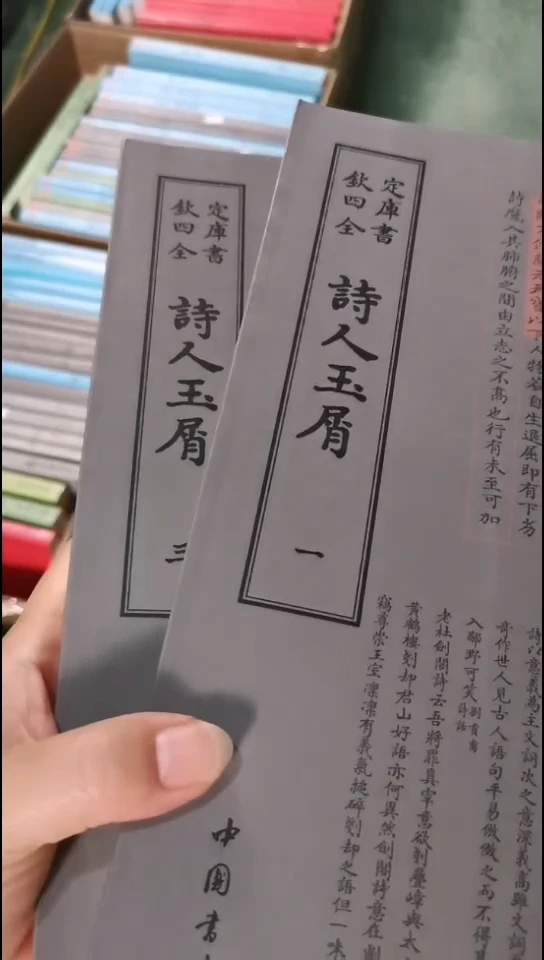 欽定
四庫
全書
詩人玉屑
三
欽定
四庫
全書
詩人玉屑
一
自生退屈即有下劣
詩魔入其肺腑之間由立志之不高也行有未至可加
詩以意義為主文詞次之意深義高雖文詞
奇作世人見古人語句平易倣傚之而不得
入鄙野可笑劉貢甫詩話
老杜劍閣詩云吾將罪真宰意欲剗疊嶂與太
黃鶴樓剗却君山好語亦何異然劍閣詩意在
竊尊崇王室凜凜有義氣搥碎剗却之語但一味
中國書